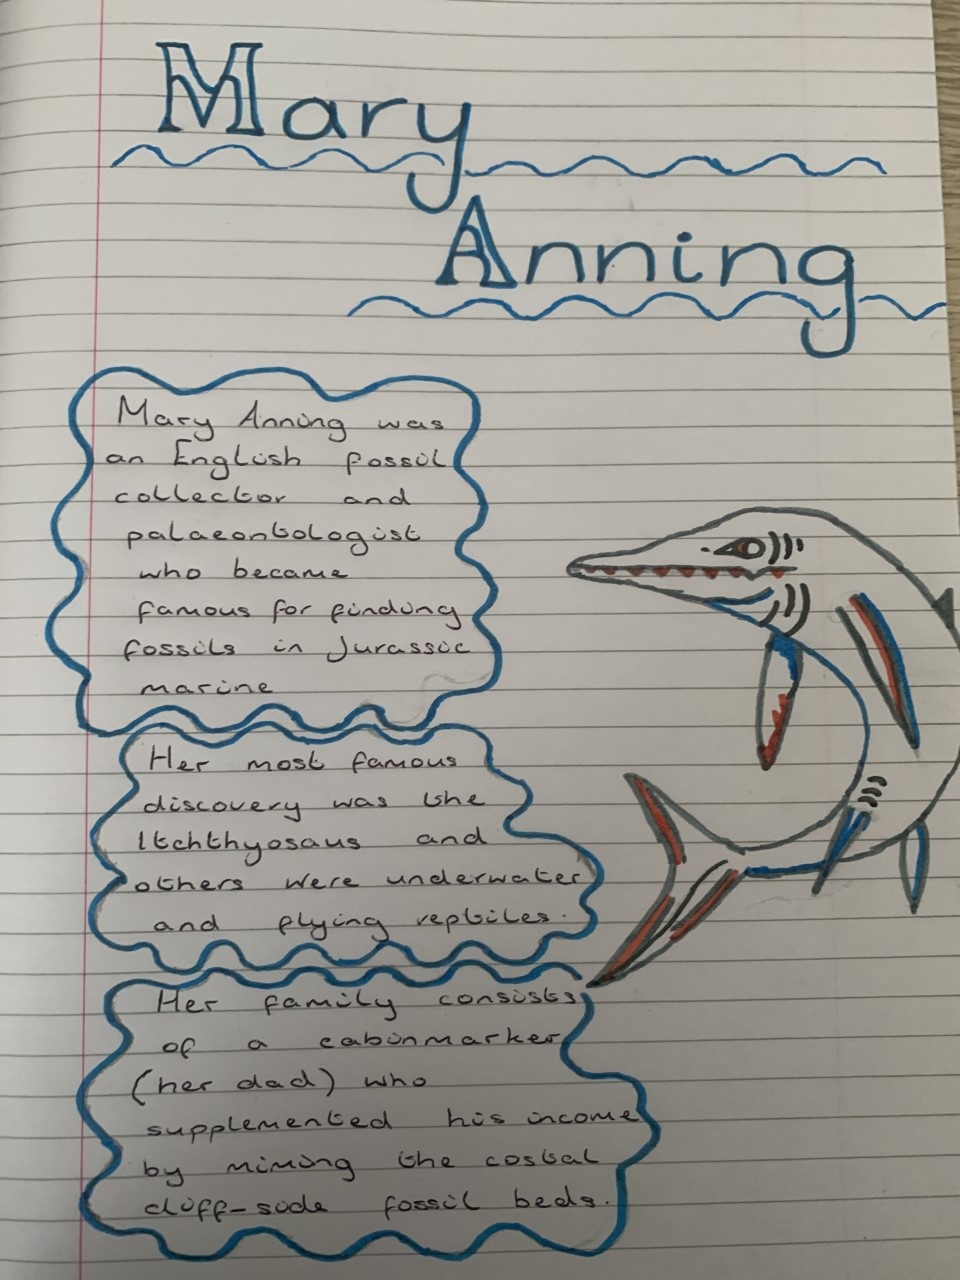 Mary
Anning
Mary Anning was
an English fossil
collector and
palaeontologist
who became
famous for finding
fossils in Jurassic
marine
Her most famous
discovery was the
Itchthyosaus and
others were underwater
and flying reptiles.
Her family consists
of a cabinmarker
(her dad) who
supplemented his income
by mining the costal
cliff-side fossil beds.